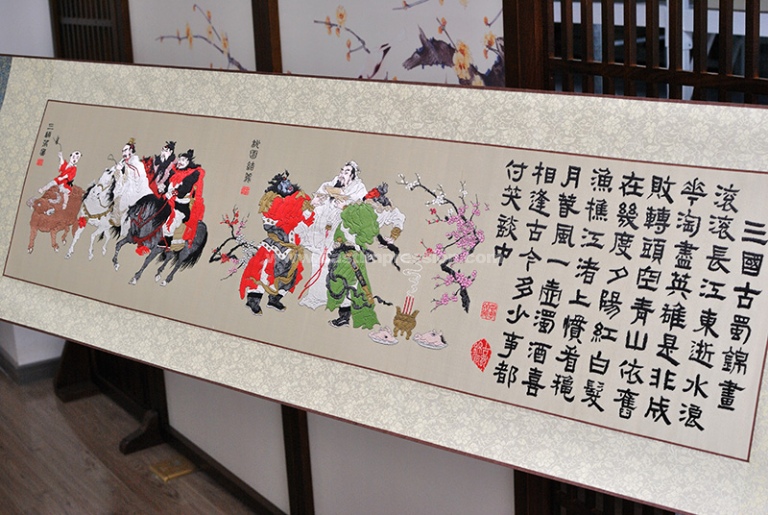 三國古蜀錦畫
滾滾長江東逝水浪
花淘盡英雄是非成
敗轉頭空青山依舊
在幾度夕陽紅白髮
漁樵江渚上慣看穐
月春風一壺濁酒喜
相逢古今多少事都
付笑談中
桃園結義
三顧茅廬